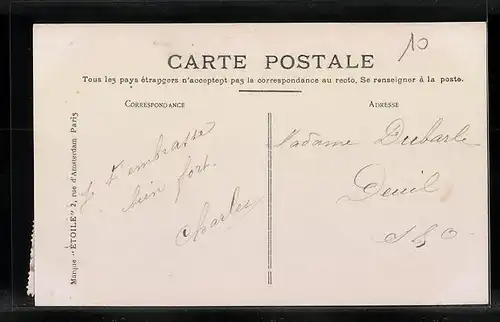 10
CARTE POSTALE
Tous les pays étrangers n'acceptent pas la correspondance au recto. Se renseigner à la poste.
CORRESPONDANCE
ADRESSE
Je t'embrasse
bien fort.
Charles
Madame Dubarle
Deuil
S & O
Marque "ÉTOILE" 2, rue d'Amsterdam Paris